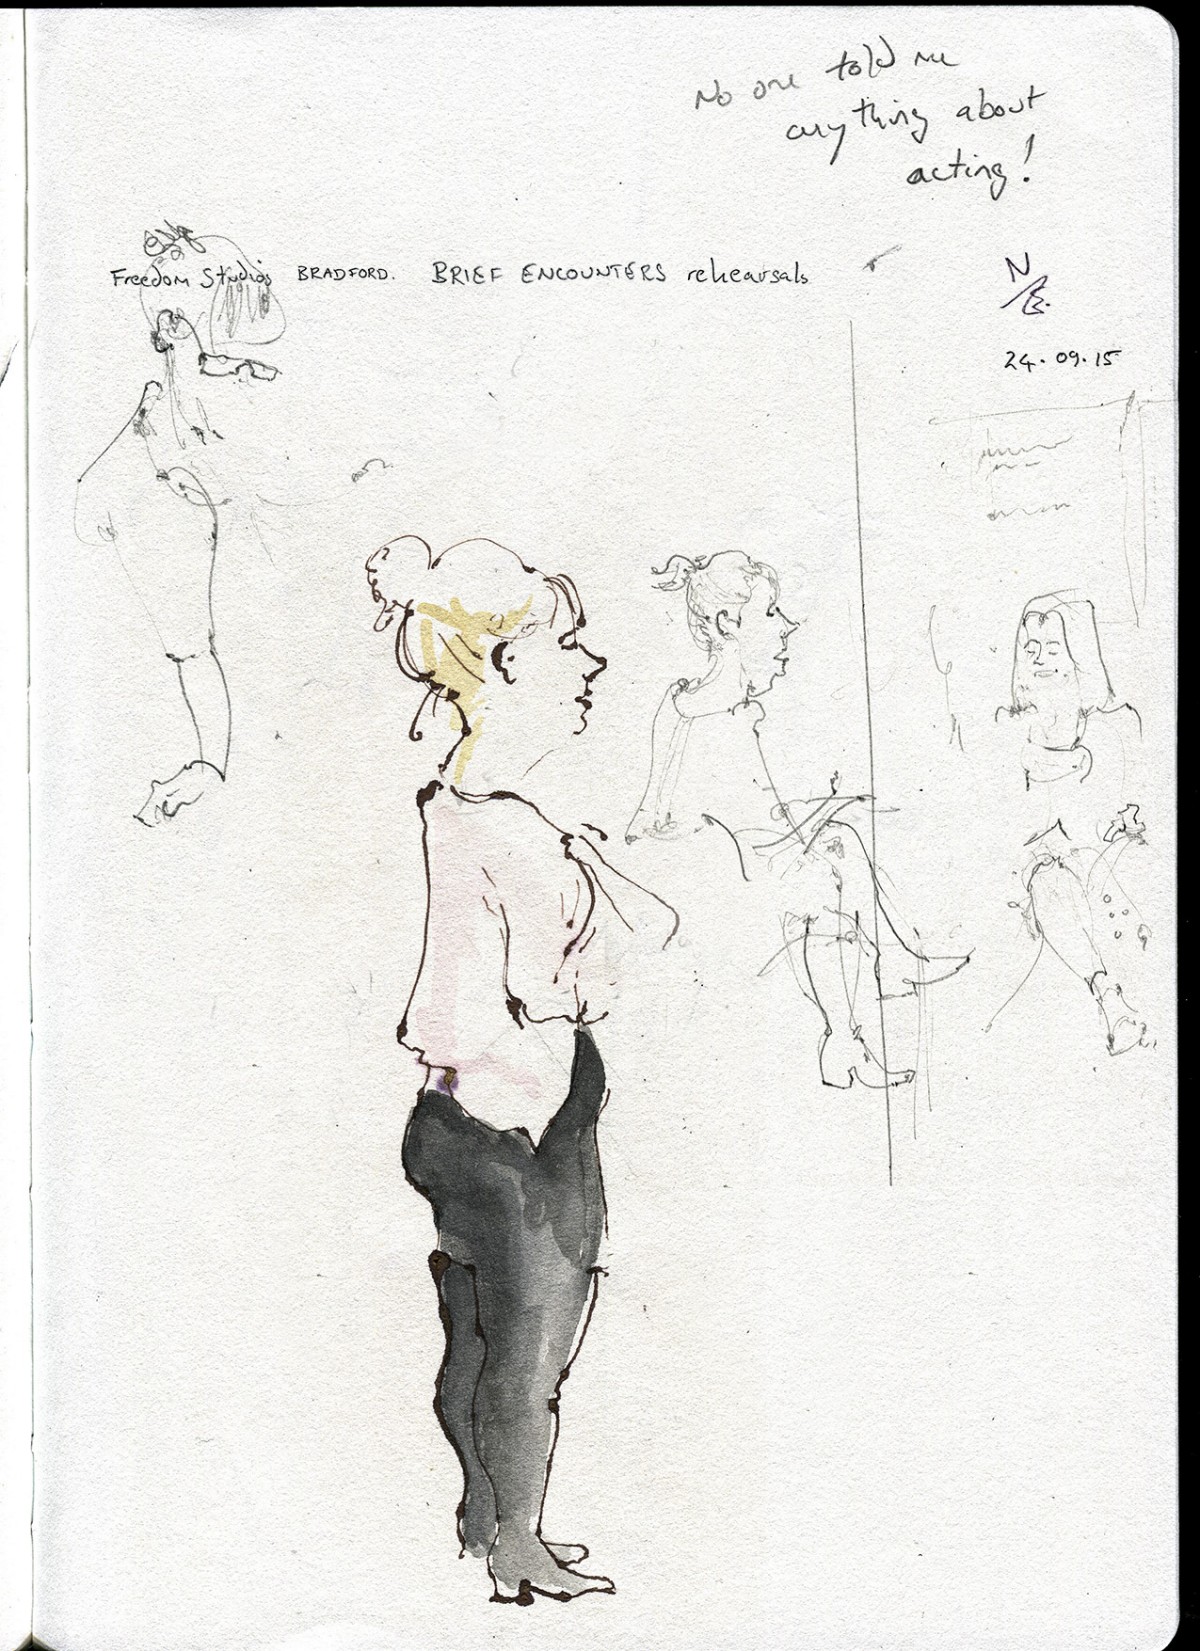 No one told me
anything about
acting!
Freedom Studios BRADFORD. BRIEF ENCOUNTERS rehearsals
24.09.15